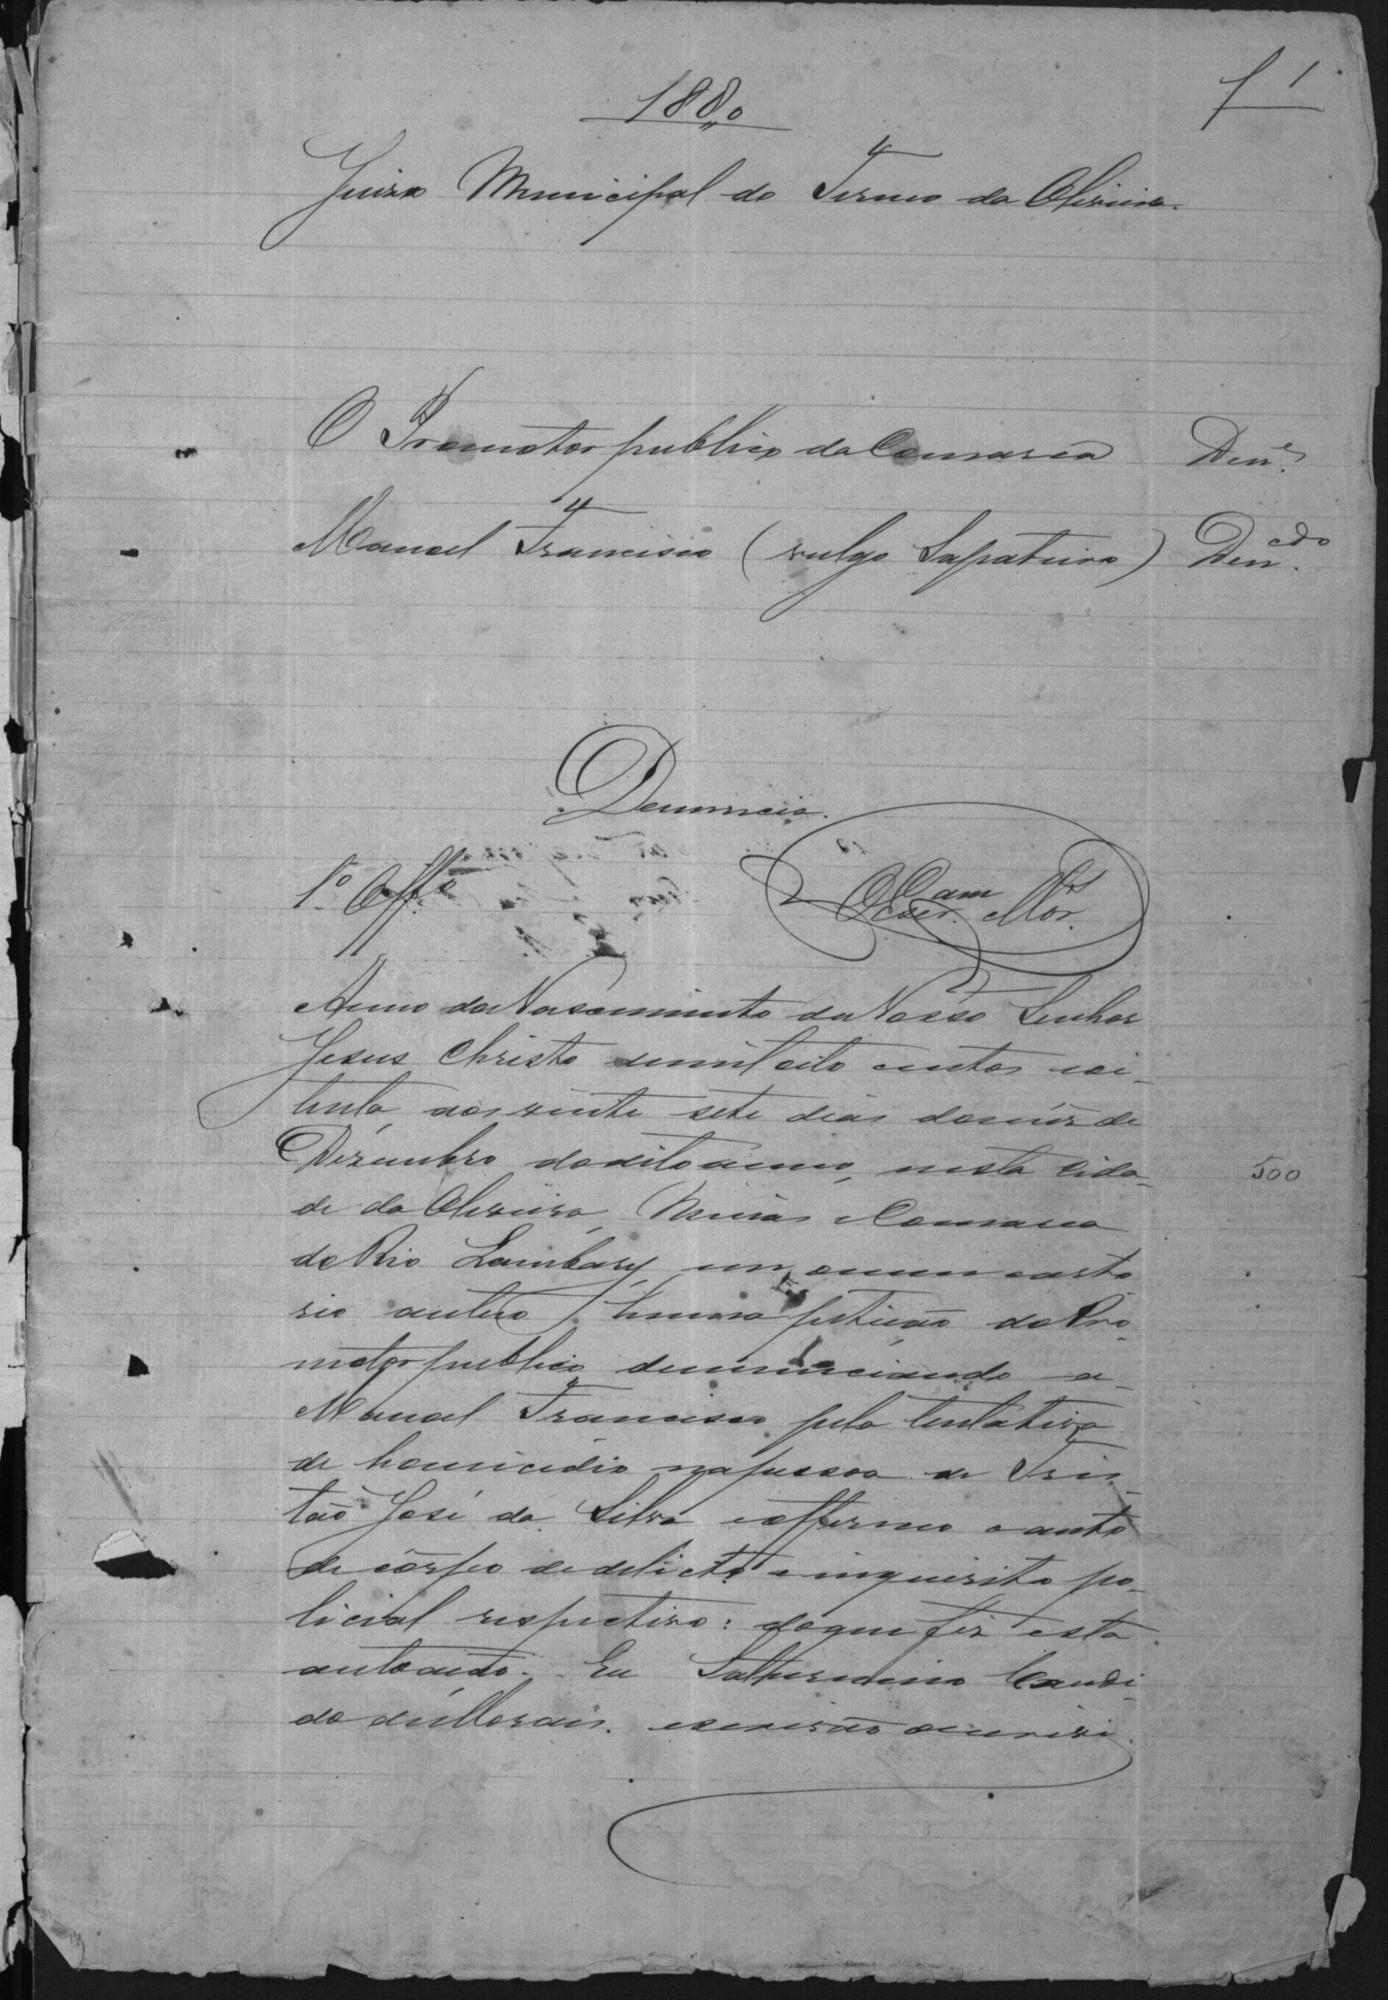 1880
f 1
Juizo Municipal do Termo da Oliveira.
O Promotor publico da Comarca Den.e
Manoel Francisco (vulgo Sapateiro) Den.cdo
Denuncia.
1.º Off.º
Escr. Mor.
Anno do Nascimento de Nosso Senhor
Jesus Christo de mil oito centos e oi-
tenta, aos vinte sete dias do mez de
Dezembro do dito anno, nesta Cida-
de da Oliveira, Minas e Comarca
do Rio Lambary em o meu carto
500
rio autuo huma petição do Pro-
motor publico denunciando a
Manoel Francisco pela tentativa
de homicidio na pessoa de Tris-
tão José da Silva e affirmo o auto
de corpo de delicto e inquerito po-
licial respectivo: do que fiz esta
autoação. Eu Salturnino Candi-
do de Moraes. escrivão o escrevi.